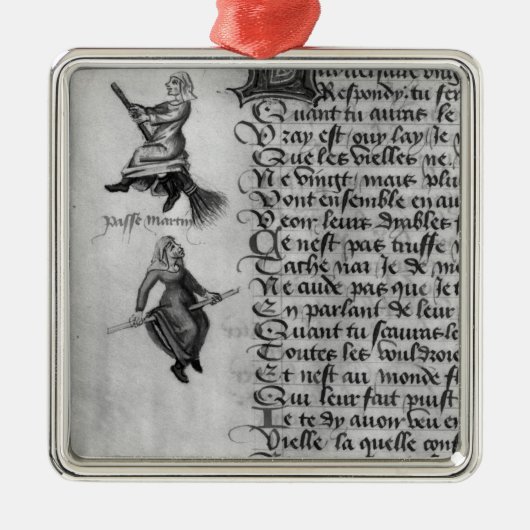 passe martin
Respondy. tu fer
Quant tu auras le
Vray est ouy lay Je
Que les vielles ne
Ne vingt. mais plu
Vont ensemble en au
Veoir leurs dyables
Ce nest pas truffe
Tache nai Je de me
Ne aude pas que Je t
En parlant de leur
Quant tu scauras le
Toutes les vouldroie
Et nest au monde f
Qui leur fait puist
Je te dy auoir veu en
Vielle la quelle conf